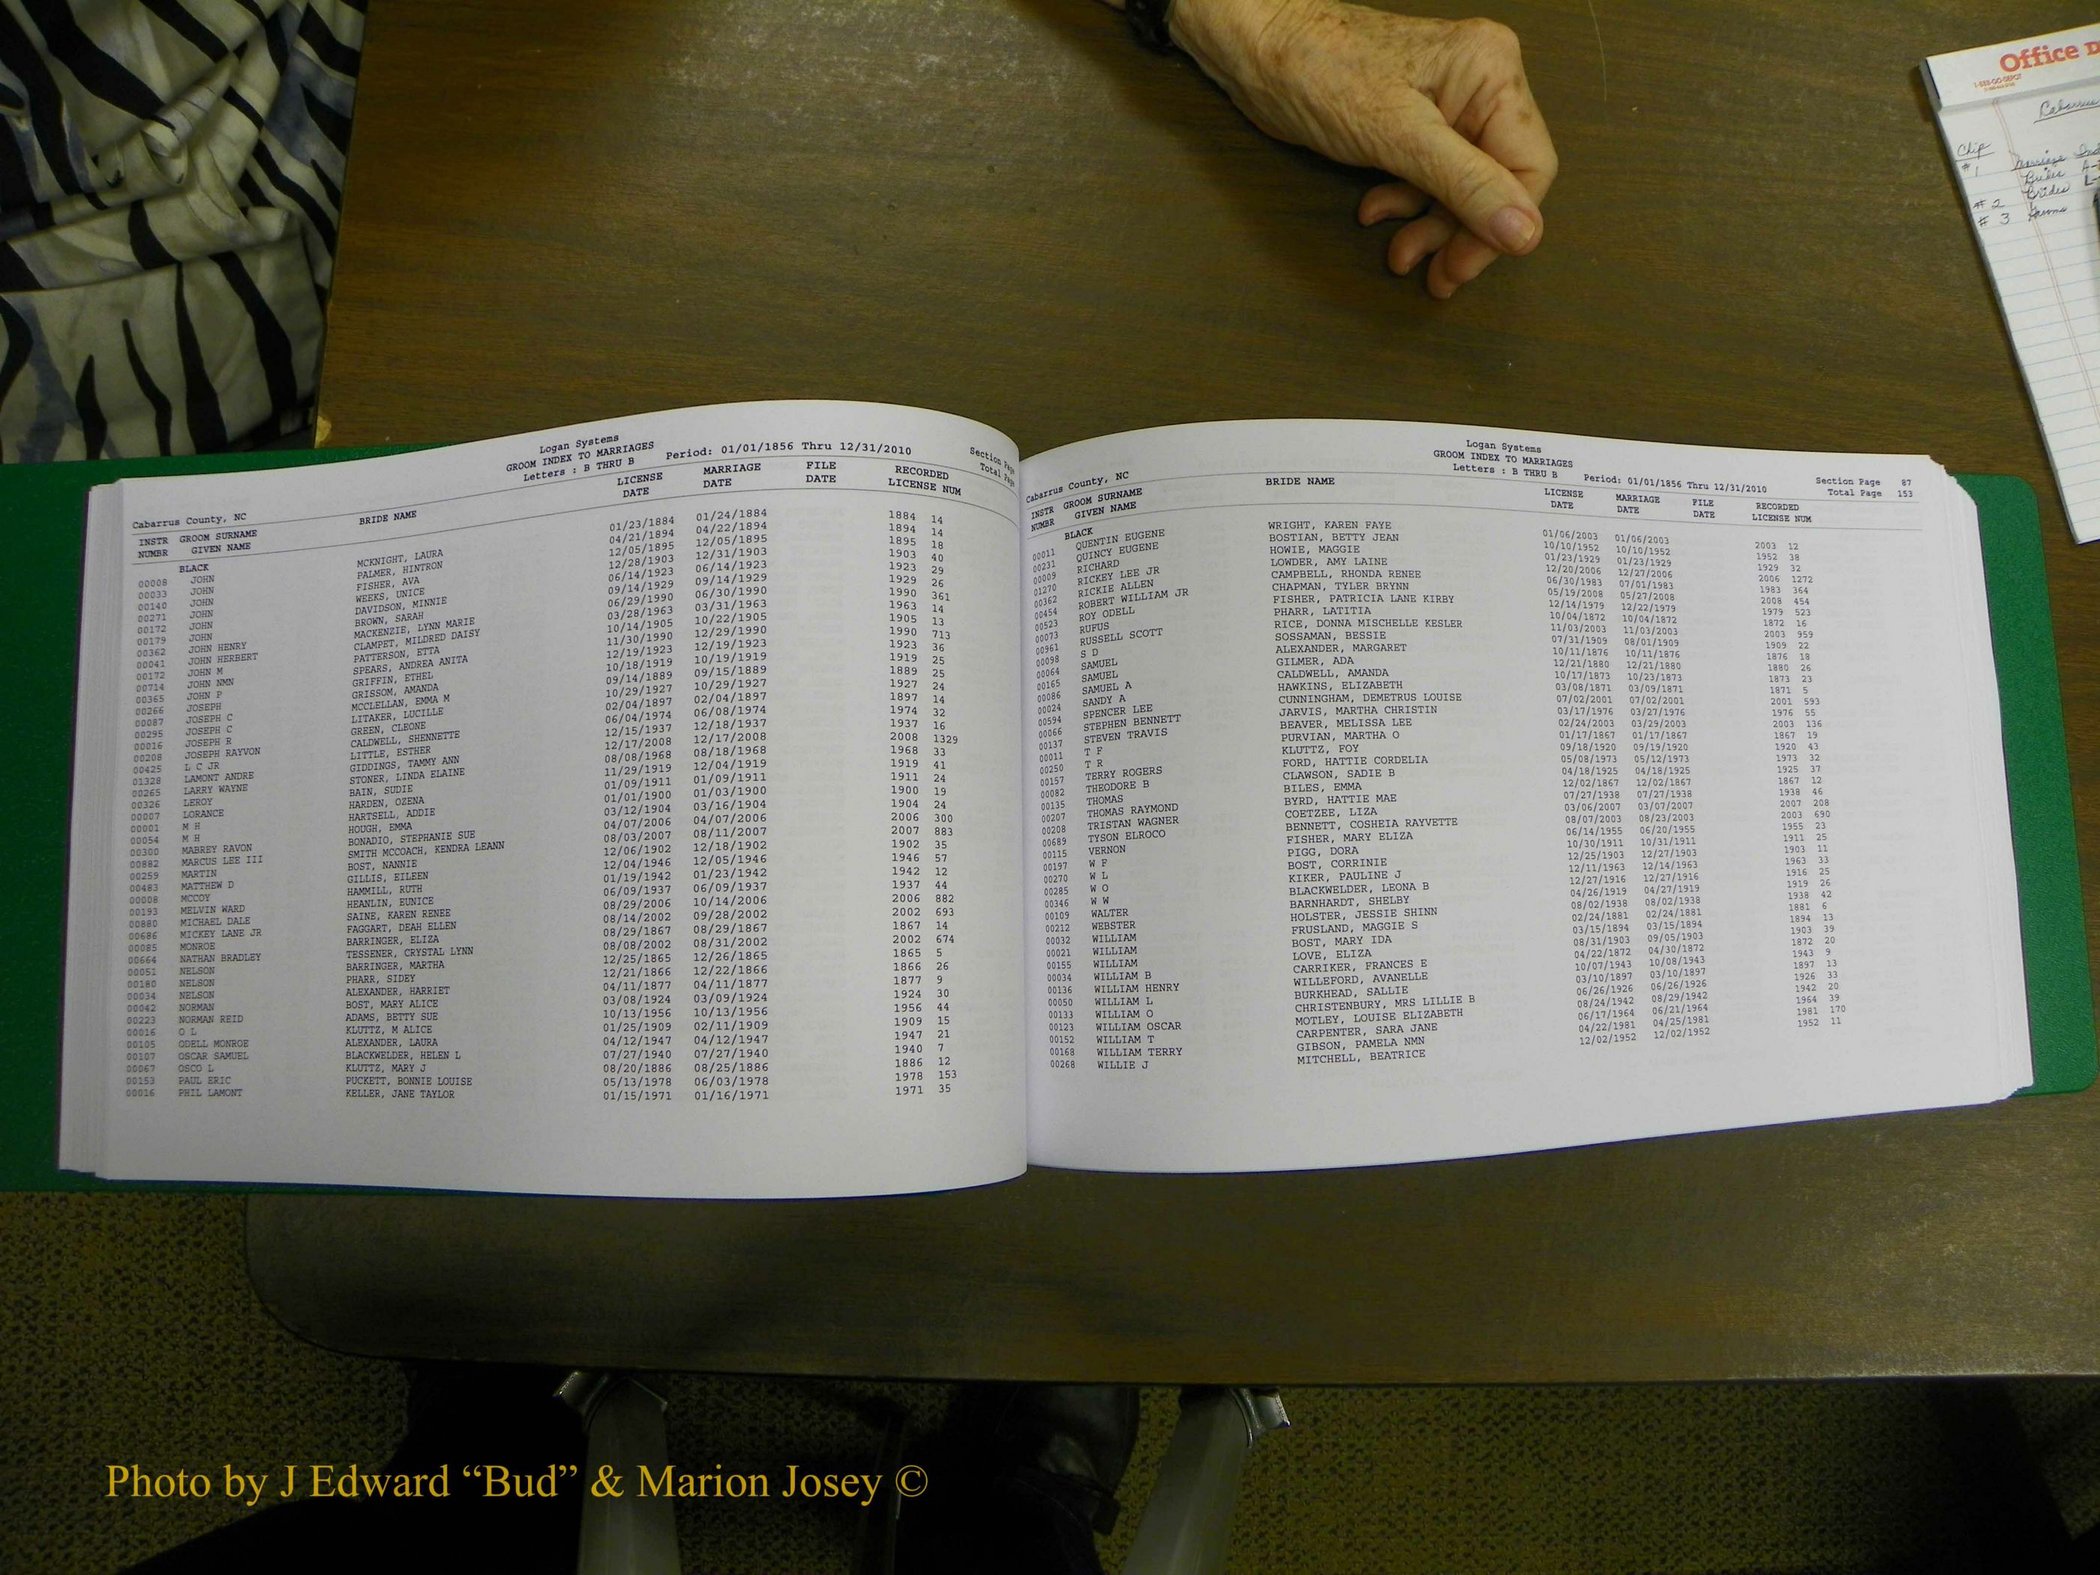 Logan Systems
GROOM INDEX TO MARRIAGES
Letters : B THRU B Period: 01/01/1856 Thru 12/31/2010
Section Page
Total Page
Cabarrus County, NC
INSTR GROOM SURNAME BRIDE NAME LICENSE MARRIAGE FILE RECORDED
NUMBR GIVEN NAME DATE DATE DATE LICENSE NUM
BLACK
00008 JOHN MCKNIGHT, LAURA 01/23/1884 01/24/1884 1884 14
00033 JOHN PALMER, HINTRON 04/21/1894 04/22/1894 1894 14
00140 JOHN FISHER, AVA 12/05/1895 12/05/1895 1895 18
00271 JOHN WEEKS, UNICE 12/28/1903 12/31/1903 1903 40
00172 JOHN DAVIDSON, MINNIE 06/14/1923 06/14/1923 1923 29
00179 JOHN BROWN, SARAH 09/14/1929 09/14/1929 1929 26
00362 JOHN HENRY MACKENZIE, LYNN MARIE 06/29/1990 06/30/1990 1990 361
00041 JOHN HERBERT CLAMPET, MILDRED DAISY 03/28/1963 03/31/1963 1963 14
00172 JOHN M PATTERSON, ETTA 10/14/1905 10/22/1905 1905 13
00714 JOHN NMN SPEARS, ANDREA ANITA 11/30/1990 12/29/1990 1990 713
00365 JOHN P GRIFFIN, ETHEL 12/19/1923 12/19/1923 1923 36
00266 JOSEPH GRISSOM, AMANDA 10/18/1919 10/19/1919 1919 25
00087 JOSEPH C MCCLELLAN, EMMA M 09/14/1889 09/15/1889 1889 25
00295 JOSEPH C LITAKER, LUCILLE 10/29/1927 10/29/1927 1927 24
00016 JOSEPH R GREEN, CLEONE 02/04/1897 02/04/1897 1897 14
00208 JOSEPH RAYVON CALDWELL, SHENNETTE 06/04/1974 06/08/1974 1974 32
00425 L C JR LITTLE, ESTHER 12/15/1937 12/18/1937 1937 16
01328 LAMONT ANDRE GIDDINGS, TAMMY ANN 12/17/2008 12/17/2008 2008 1329
00265 LARRY WAYNE STONER, LINDA ELAINE 08/08/1968 08/18/1968 1968 33
00326 LEROY BAIN, SUDIE 11/29/1919 12/04/1919 1919 41
00007 LORANCE HARDEN, OZENA 01/09/1911 01/09/1911 1911 24
00001 M H HARTSELL, ADDIE 01/01/1900 01/03/1900 1900 19
00054 M H HOUGH, EMMA 03/12/1904 03/16/1904 1904 24
00300 MABREY RAVON BONADIO, STEPHANIE SUE 04/07/2006 04/07/2006 2006 300
00882 MARCUS LEE III SMITH MCCOACH, KENDRA LEANN 08/03/2007 08/11/2007 2007 883
00259 MARTIN BOST, NANNIE 12/06/1902 12/18/1902 1902 35
00483 MATTHEW D GILLIS, EILEEN 12/04/1946 12/05/1946 1946 57
00008 MCCOY HAMMILL, RUTH 01/19/1942 01/23/1942 1942 12
00193 MELVIN WARD HEANLIN, EUNICE 06/09/1937 06/09/1937 1937 44
00880 MICHAEL DALE SAINE, KAREN RENEE 08/29/2006 10/14/2006 2006 882
00686 MICKEY LANE JR FAGGART, DEAH ELLEN 08/14/2002 09/28/2002 2002 693
00085 MONROE BARRINGER, ELIZA 08/29/1867 08/29/1867 1867 14
00664 NATHAN BRADLEY TESSENER, CRYSTAL LYNN 08/08/2002 08/31/2002 2002 674
00051 NELSON BARRINGER, MARTHA 12/25/1865 12/26/1865 1865 5
00180 NELSON PHARR, SIDEY 12/21/1866 12/22/1866 1866 26
00034 NELSON ALEXANDER, HARRIET 04/11/1877 04/11/1877 1877 9
00042 NORMAN BOST, MARY ALICE 03/08/1924 03/09/1924 1924 30
00223 NORMAN REID ADAMS, BETTY SUE 10/13/1956 10/13/1956 1956 44
00016 O L KLUTTZ, M ALICE 01/25/1909 02/11/1909 1909 15
00105 ODELL MONROE ALEXANDER, LAURA 04/12/1947 04/12/1947 1947 21
00107 OSCAR SAMUEL BLACKWELDER, HELEN L 07/27/1940 07/27/1940 1940 7
00067 OSCO L KLUTTZ, MARY J 08/20/1886 08/25/1886 1886 12
00153 PAUL ERIC PUCKETT, BONNIE LOUISE 05/13/1978 06/03/1978 1978 153
00016 PHIL LAMONT KELLER, JANE TAYLOR 01/15/1971 01/16/1971 1971 35
Logan Systems
GROOM INDEX TO MARRIAGES
Letters : B THRU B Period: 01/01/1856 Thru 12/31/2010
Section Page 87
Total Page 153
Cabarrus County, NC
INSTR GROOM SURNAME BRIDE NAME LICENSE MARRIAGE FILE RECORDED
NUMBR GIVEN NAME DATE DATE DATE LICENSE NUM
BLACK
00011 QUENTIN EUGENE WRIGHT, KAREN FAYE 01/06/2003 01/06/2003 2003 12
00231 QUINCY EUGENE BOSTIAN, BETTY JEAN 10/10/1952 10/10/1952 1952 38
00009 RICHARD HOWIE, MAGGIE 01/23/1929 01/23/1929 1929 32
01270 RICKEY LEE JR LOWDER, AMY LAINE 12/20/2006 12/27/2006 2006 1272
00362 RICKIE ALLEN CAMPBELL, RHONDA RENEE 06/30/1983 07/01/1983 1983 364
00454 ROBERT WILLIAM JR CHAPMAN, TYLER BRYNN 05/19/2008 05/27/2008 2008 454
00523 ROY ODELL FISHER, PATRICIA LANE KIRBY 12/14/1979 12/22/1979 1979 523
00073 RUFUS PHARR, LATITIA 10/04/1872 10/04/1872 1872 16
00961 RUSSELL SCOTT RICE, DONNA MISCHELLE KESLER 11/03/2003 11/03/2003 2003 959
00098 S D SOSSAMAN, BESSIE 07/31/1909 08/01/1909 1909 22
00064 SAMUEL ALEXANDER, MARGARET 10/11/1876 10/11/1876 1876 18
00165 SAMUEL GILMER, ADA 12/21/1880 12/21/1880 1880 26
00086 SAMUEL A CALDWELL, AMANDA 10/17/1873 10/23/1873 1873 23
00024 SANDY A HAWKINS, ELIZABETH 03/08/1871 03/09/1871 1871 5
00594 SPENCER LEE CUNNINGHAM, DEMETRUS LOUISE 07/02/2001 07/02/2001 2001 593
00066 STEPHEN BENNETT JARVIS, MARTHA CHRISTIN 03/17/1976 03/27/1976 1976 55
00137 STEVEN TRAVIS BEAVER, MELISSA LEE 02/24/2003 03/29/2003 2003 136
00011 T F PURVIAN, MARTHA O 01/17/1867 01/17/1867 1867 19
00250 T R KLUTTZ, FOY 09/18/1920 09/19/1920 1920 43
00157 TERRY ROGERS FORD, HATTIE CORDELIA 05/08/1973 05/12/1973 1973 32
00082 THEODORE B CLAWSON, SADIE B 04/18/1925 04/18/1925 1925 37
00135 THOMAS BILES, EMMA 12/02/1867 12/02/1867 1867 12
00207 THOMAS RAYMOND BYRD, HATTIE MAE 07/27/1938 07/27/1938 1938 46
00208 TRISTAN WAGNER COETZEE, LIZA 03/06/2007 03/07/2007 2007 208
00689 TYSON ELROCO BENNETT, COSHEIA RAYVETTE 08/07/2003 08/23/2003 2003 690
00115 VERNON FISHER, MARY ELIZA 06/14/1955 06/20/1955 1955 23
00197 W F PIGG, DORA 10/30/1911 10/31/1911 1911 25
00270 W L BOST, CORRINIE 12/25/1903 12/27/1903 1903 11
00285 W O KIKER, PAULINE J 12/11/1963 12/14/1963 1963 33
00346 W W BLACKWELDER, LEONA B 12/27/1916 12/27/1916 1916 25
00109 WALTER BARNHARDT, SHELBY 04/26/1919 04/27/1919 1919 26
00212 WEBSTER HOLSTER, JESSIE SHINN 08/02/1938 08/02/1938 1938 42
00032 WILLIAM FRUSLAND, MAGGIE S 02/24/1881 02/24/1881 1881 6
00021 WILLIAM BOST, MARY IDA 03/15/1894 03/15/1894 1894 13
00155 WILLIAM LOVE, ELIZA 08/31/1903 09/05/1903 1903 39
00034 WILLIAM B CARRIKER, FRANCES E 04/22/1872 04/30/1872 1872 20
00136 WILLIAM HENRY WILLEFORD, AVANELLE 10/07/1943 10/08/1943 1943 9
00050 WILLIAM L BURKHEAD, SALLIE 03/10/1897 03/10/1897 1897 13
00133 WILLIAM O CHRISTENBURY, MRS LILLIE B 06/26/1926 06/26/1926 1926 33
00123 WILLIAM OSCAR MOTLEY, LOUISE ELIZABETH 08/24/1942 08/29/1942 1942 20
00152 WILLIAM T CARPENTER, SARA JANE 06/17/1964 06/21/1964 1964 39
00168 WILLIAM TERRY GIBSON, PAMELA NMN 04/22/1981 04/25/1981 1981 170
00268 WILLIE J MITCHELL, BEATRICE 12/02/1952 12/02/1952 1952 11
Office
Chip
# 1 Marriage
Brides
# 2 Brides
# 3
Photo by J Edward “Bud” & Marion Josey ©